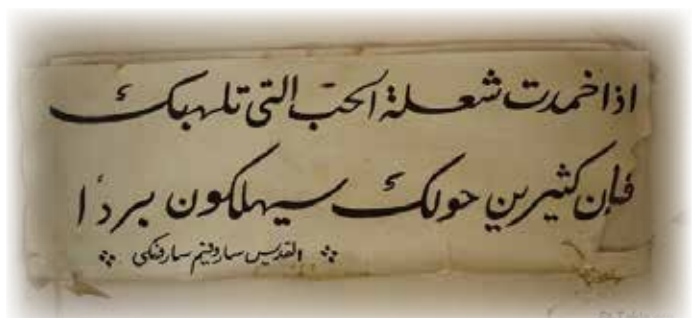 اذا خمدت شعلة الحبّ التى تلهبك
فإن كثيرين حولك سيهلكون بردًا
القديس ساروفيم سارفسكى